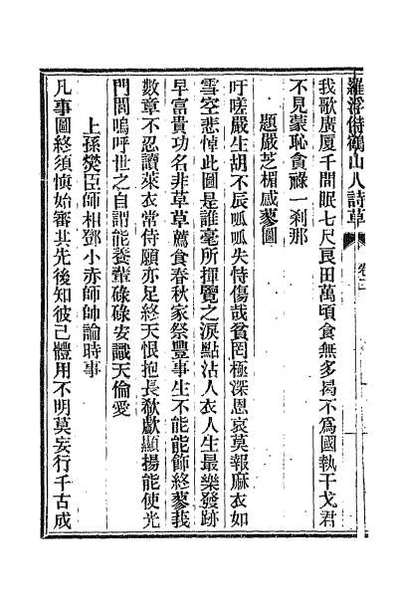 羅浮侍鶴山人詩草 卷二
我歌廣厦千間眠七尺良田萬頃食無多曷不爲國執干戈君
不見蒙恥貪祿一剎那
題嚴芝楣慼蓼圖
吁嗟嚴生胡不辰呱呱失恃傷哉貧罔極深恩哀莫報麻衣如
雪空悲悼此圖是誰毫所揮覽之淚點沾人衣人生最樂發跡
早富貴功名非草草薦食春秋家祭豐事生不能能飾終蓼莪
數章不忍讀萊衣常侍願亦足終天恨抱長欷歔顯揚能使光
門閭嗚呼世之自謂能養輩碌碌安識天倫愛
上孫燮臣師相鄧小赤師帥論時事
凡事圖終須慎始審其先後知彼己體用不明莫妄行千古成